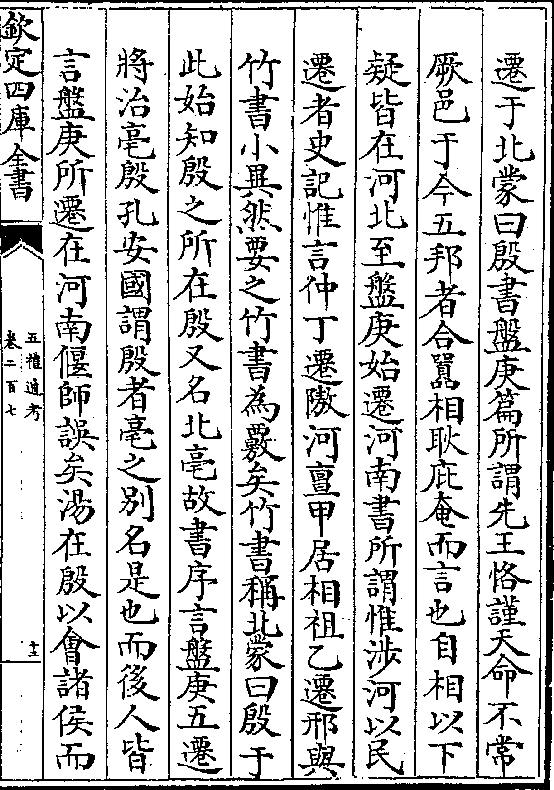 遷于北蒙曰殷書盤庚篇所謂先王恪謹天命不常
厥邑于今五邦者合囂相耿庇奄而言也自相以下
疑皆在河北至盤庚始遷河南書所謂惟涉河以民
遷者史記惟言仲丁遷隞河亶甲居相祖乙遷邢與
竹書小異然要之竹書為覈矣竹書稱北蒙曰殷于
此始知殷之所在殷又名北亳故書序言盤庚五遷
將治亳殷孔安國謂殷者亳之别名是也而後人皆
言盤庚所遷在河南偃師誤矣湯在殷以會諸侯而
欽定四庫全書
五禮通考
卷二百七
十三